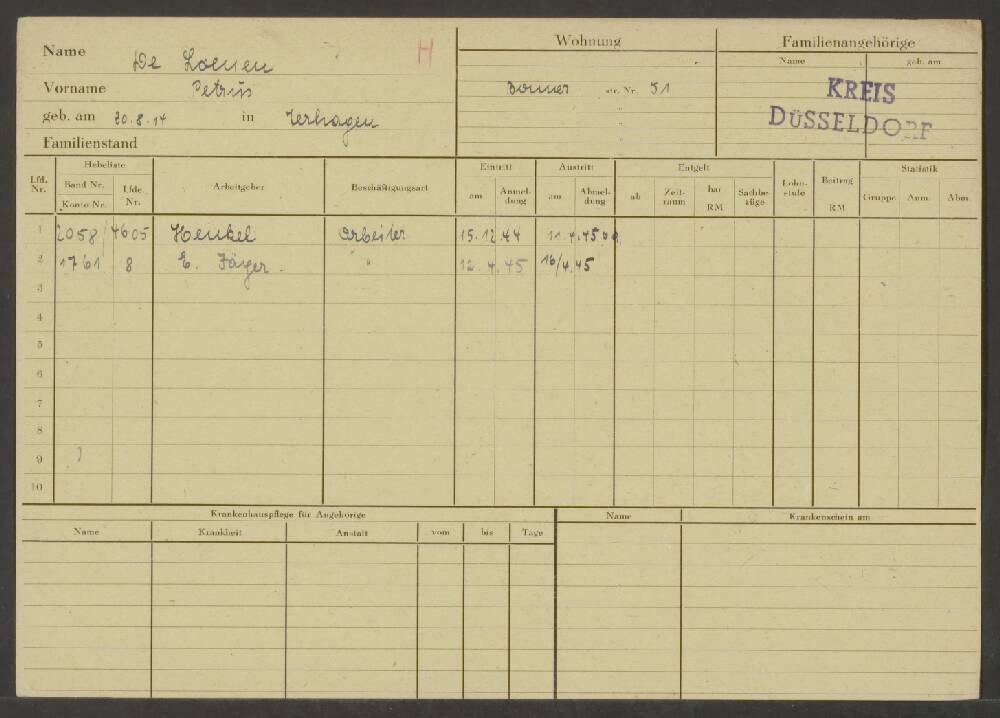 Name De Loenen H
Vorname Petrus
geb. am 30.8.14 in Terhagen
Familienstand
Wohnung
Bonner str. Nr. 51
Familienangehörige
Name geb. am
KREIS
DÜSSELDORF
Lfd. Nr. Hebeliste Arbeitgeber Beschäftigungsart Eintritt Austritt Entgelt Lohnstufe Beitrag RM Statistik
Band Nr. Konto-Nr. Lfde. Nr. am Anmeldung am Abmeldung ab Zeitraum bar RM Sachbezüge Gruppe Anm. Abm.
1 2058/4605 Henkel Arbeiter 15.12.44 11.4.45
2 1761 8 E. Jäger " 12.4.45 16/4.45
3
4
5
6
7
8
9
10
Krankenhauspflege für Angehörige
Name Krankheit Anstalt vom bis Tage
Name Krankenschein am